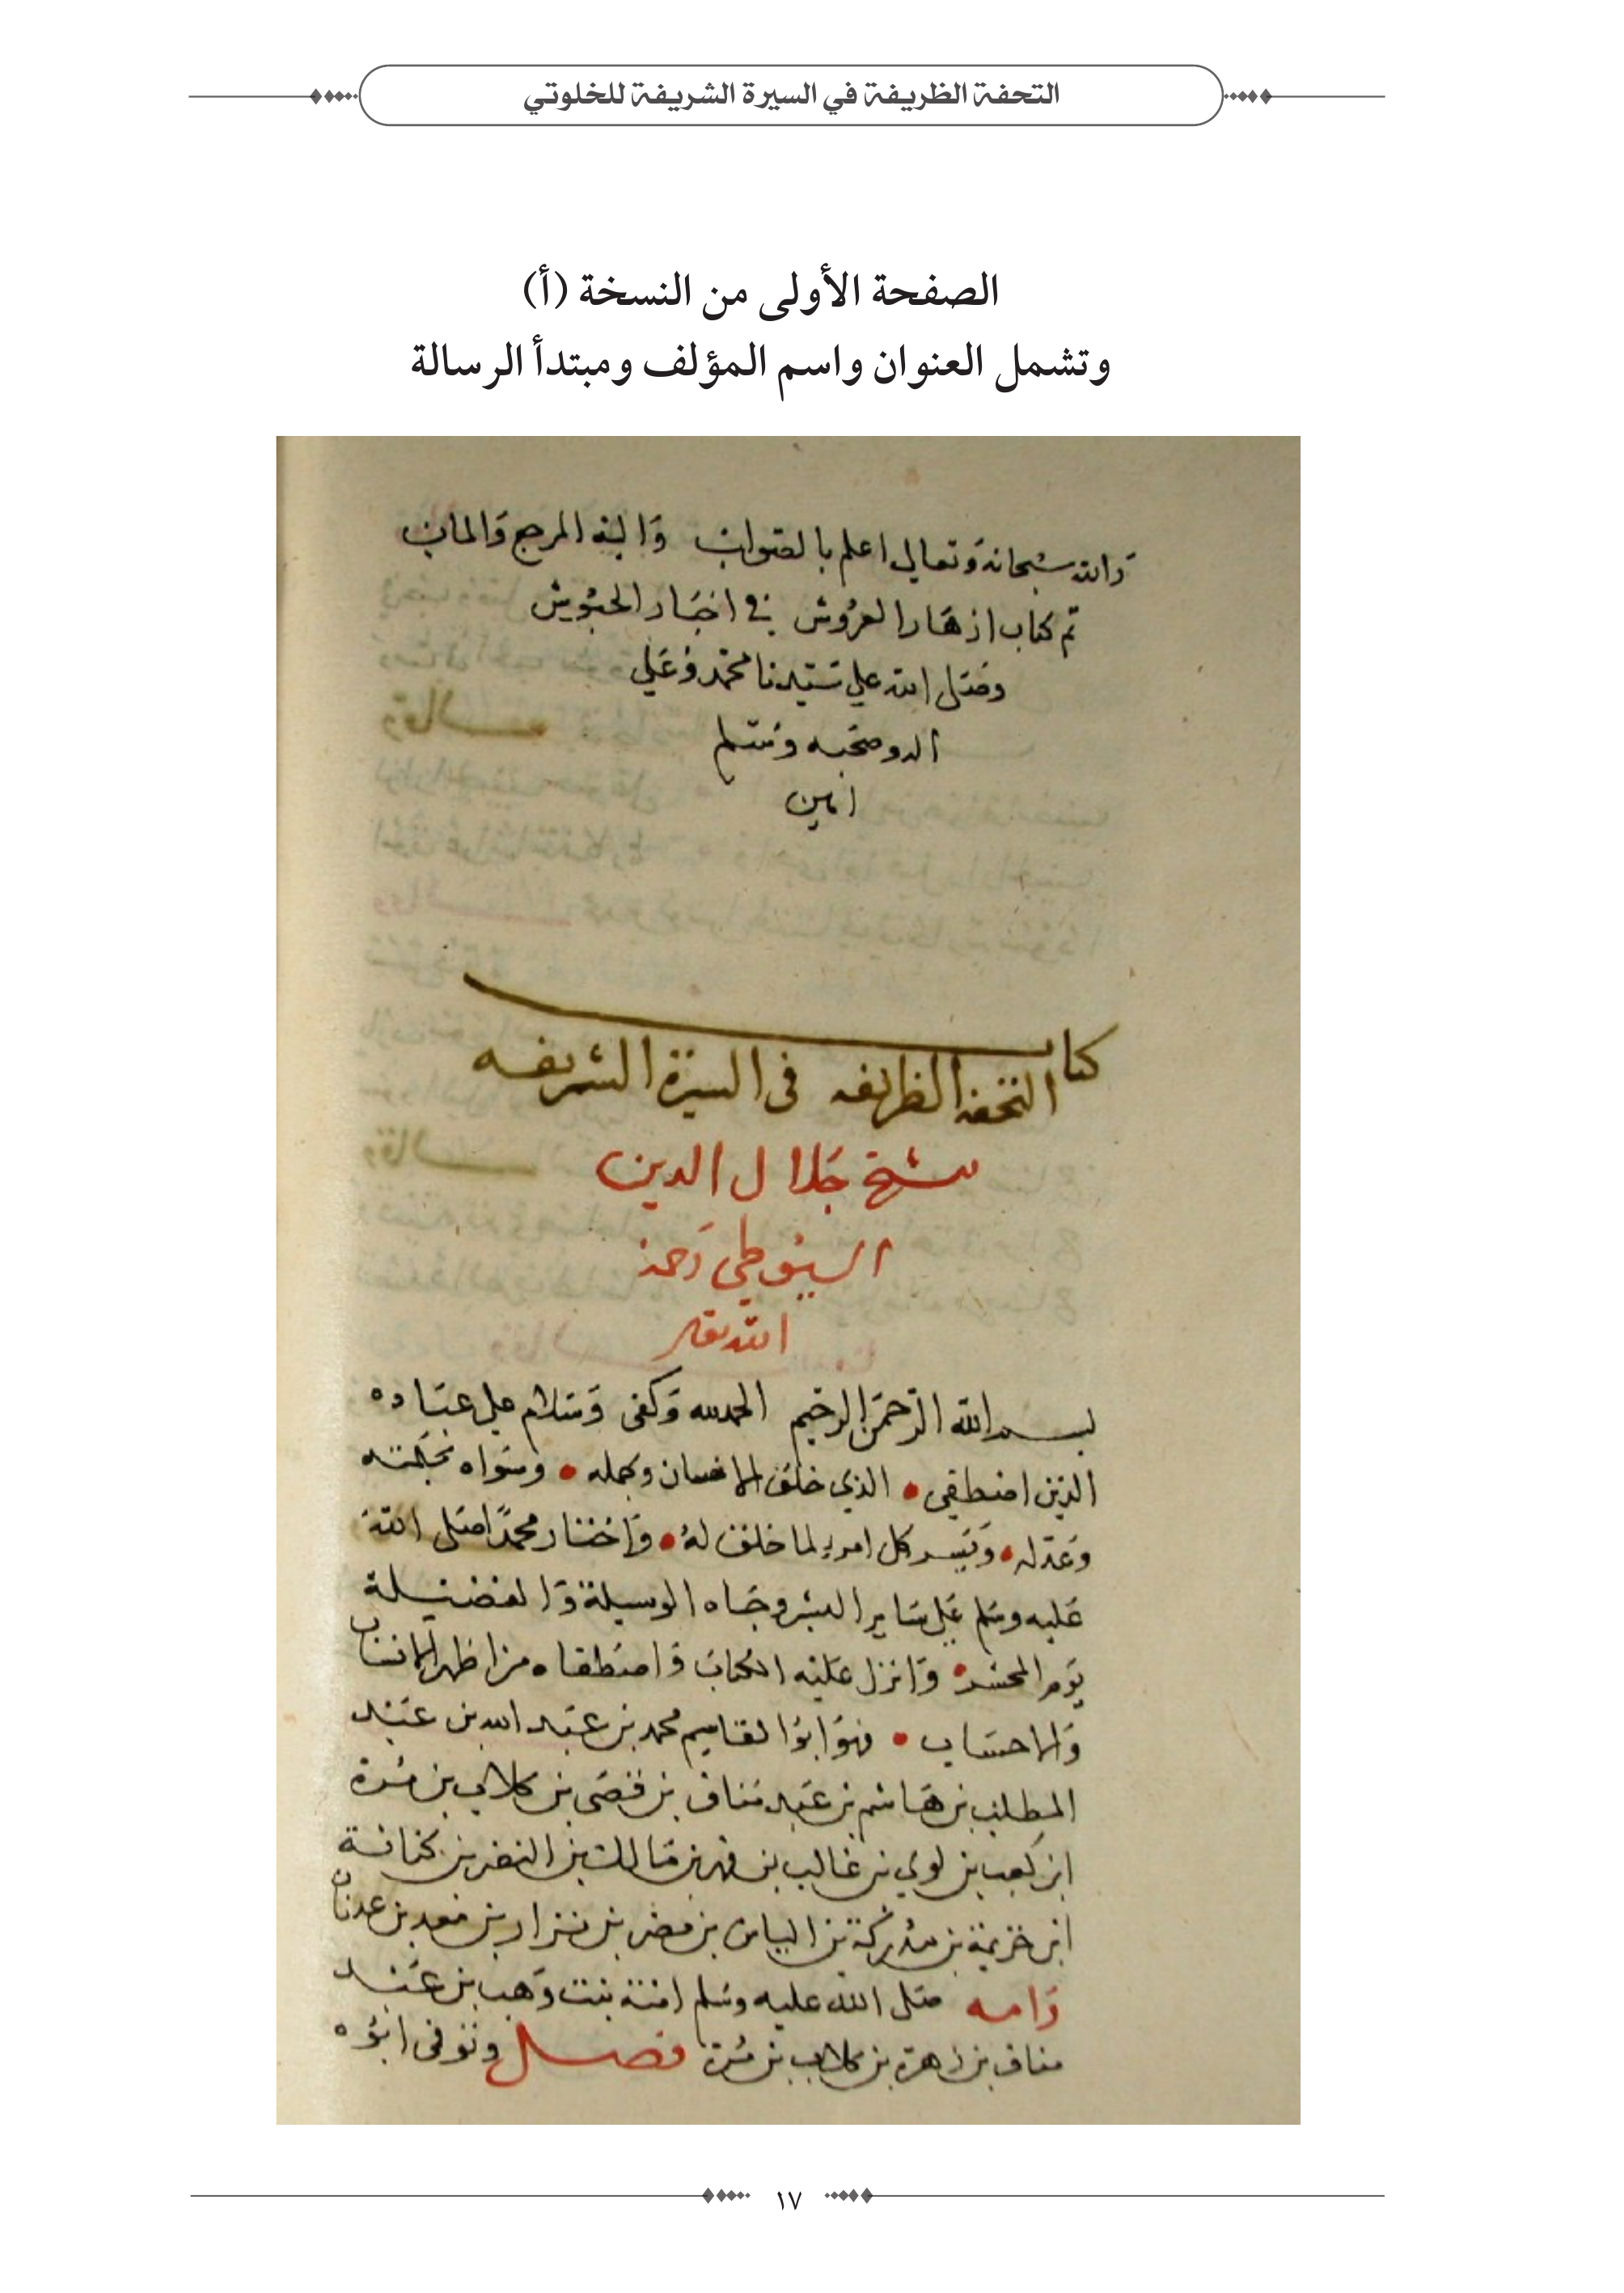 التحفة الظريفة في السيرة الشريفة للخلوتي
الصفحة الأولى من النسخة (أ)
وتشمل العنوان واسم المؤلف ومبتدأ الرسالة
والله سبحانه وتعالى اعلم بالصواب واليه المرجع والماب
تم كتاب ازهار العروش في اخبار الحبوش
وصلى الله علي سيدنا محمد وعلي
اله وصحبه وسلم
امين
كتاب
التحفة الظريفه في السيرة الشريفه
شيخ جلال الدين
السيوطي رحمة
الله تعالى
بسم الله الرحمن الرحيم الحمد لله وكفى وسلام على عباده
الذين اصطفي • الذي خلق الانسان وجمله • وسواه بحكمته
وعدله • ويسر كل امرء لما خلق له • واختار محمدا صلى الله
عليه وسلم علي ساير البشر وحباه الوسيلة والفضيلة
يوم المحشر • وانزل عليه الكتاب واصطفاه من اطهر الانساب
والاحساب • فهو ابوا القاسم محمد بن عبد الله بن عبد
المطلب بن هاشم بن عبد مناف بن قصي بن كلاب بن مرة
ابن كعب بن لوي بن غالب بن فهر بن مالك بن النضر بن كنانة
ابن خزيمة بن مدركة بن الياس بن مضر بن نزار بن معد بن عدنان
وامه صلى الله عليه وسلم امنة بنت وهب بن عبد
مناف بن زهرة بن كلاب بن مرة فصل وتوفى ابوه
١٧